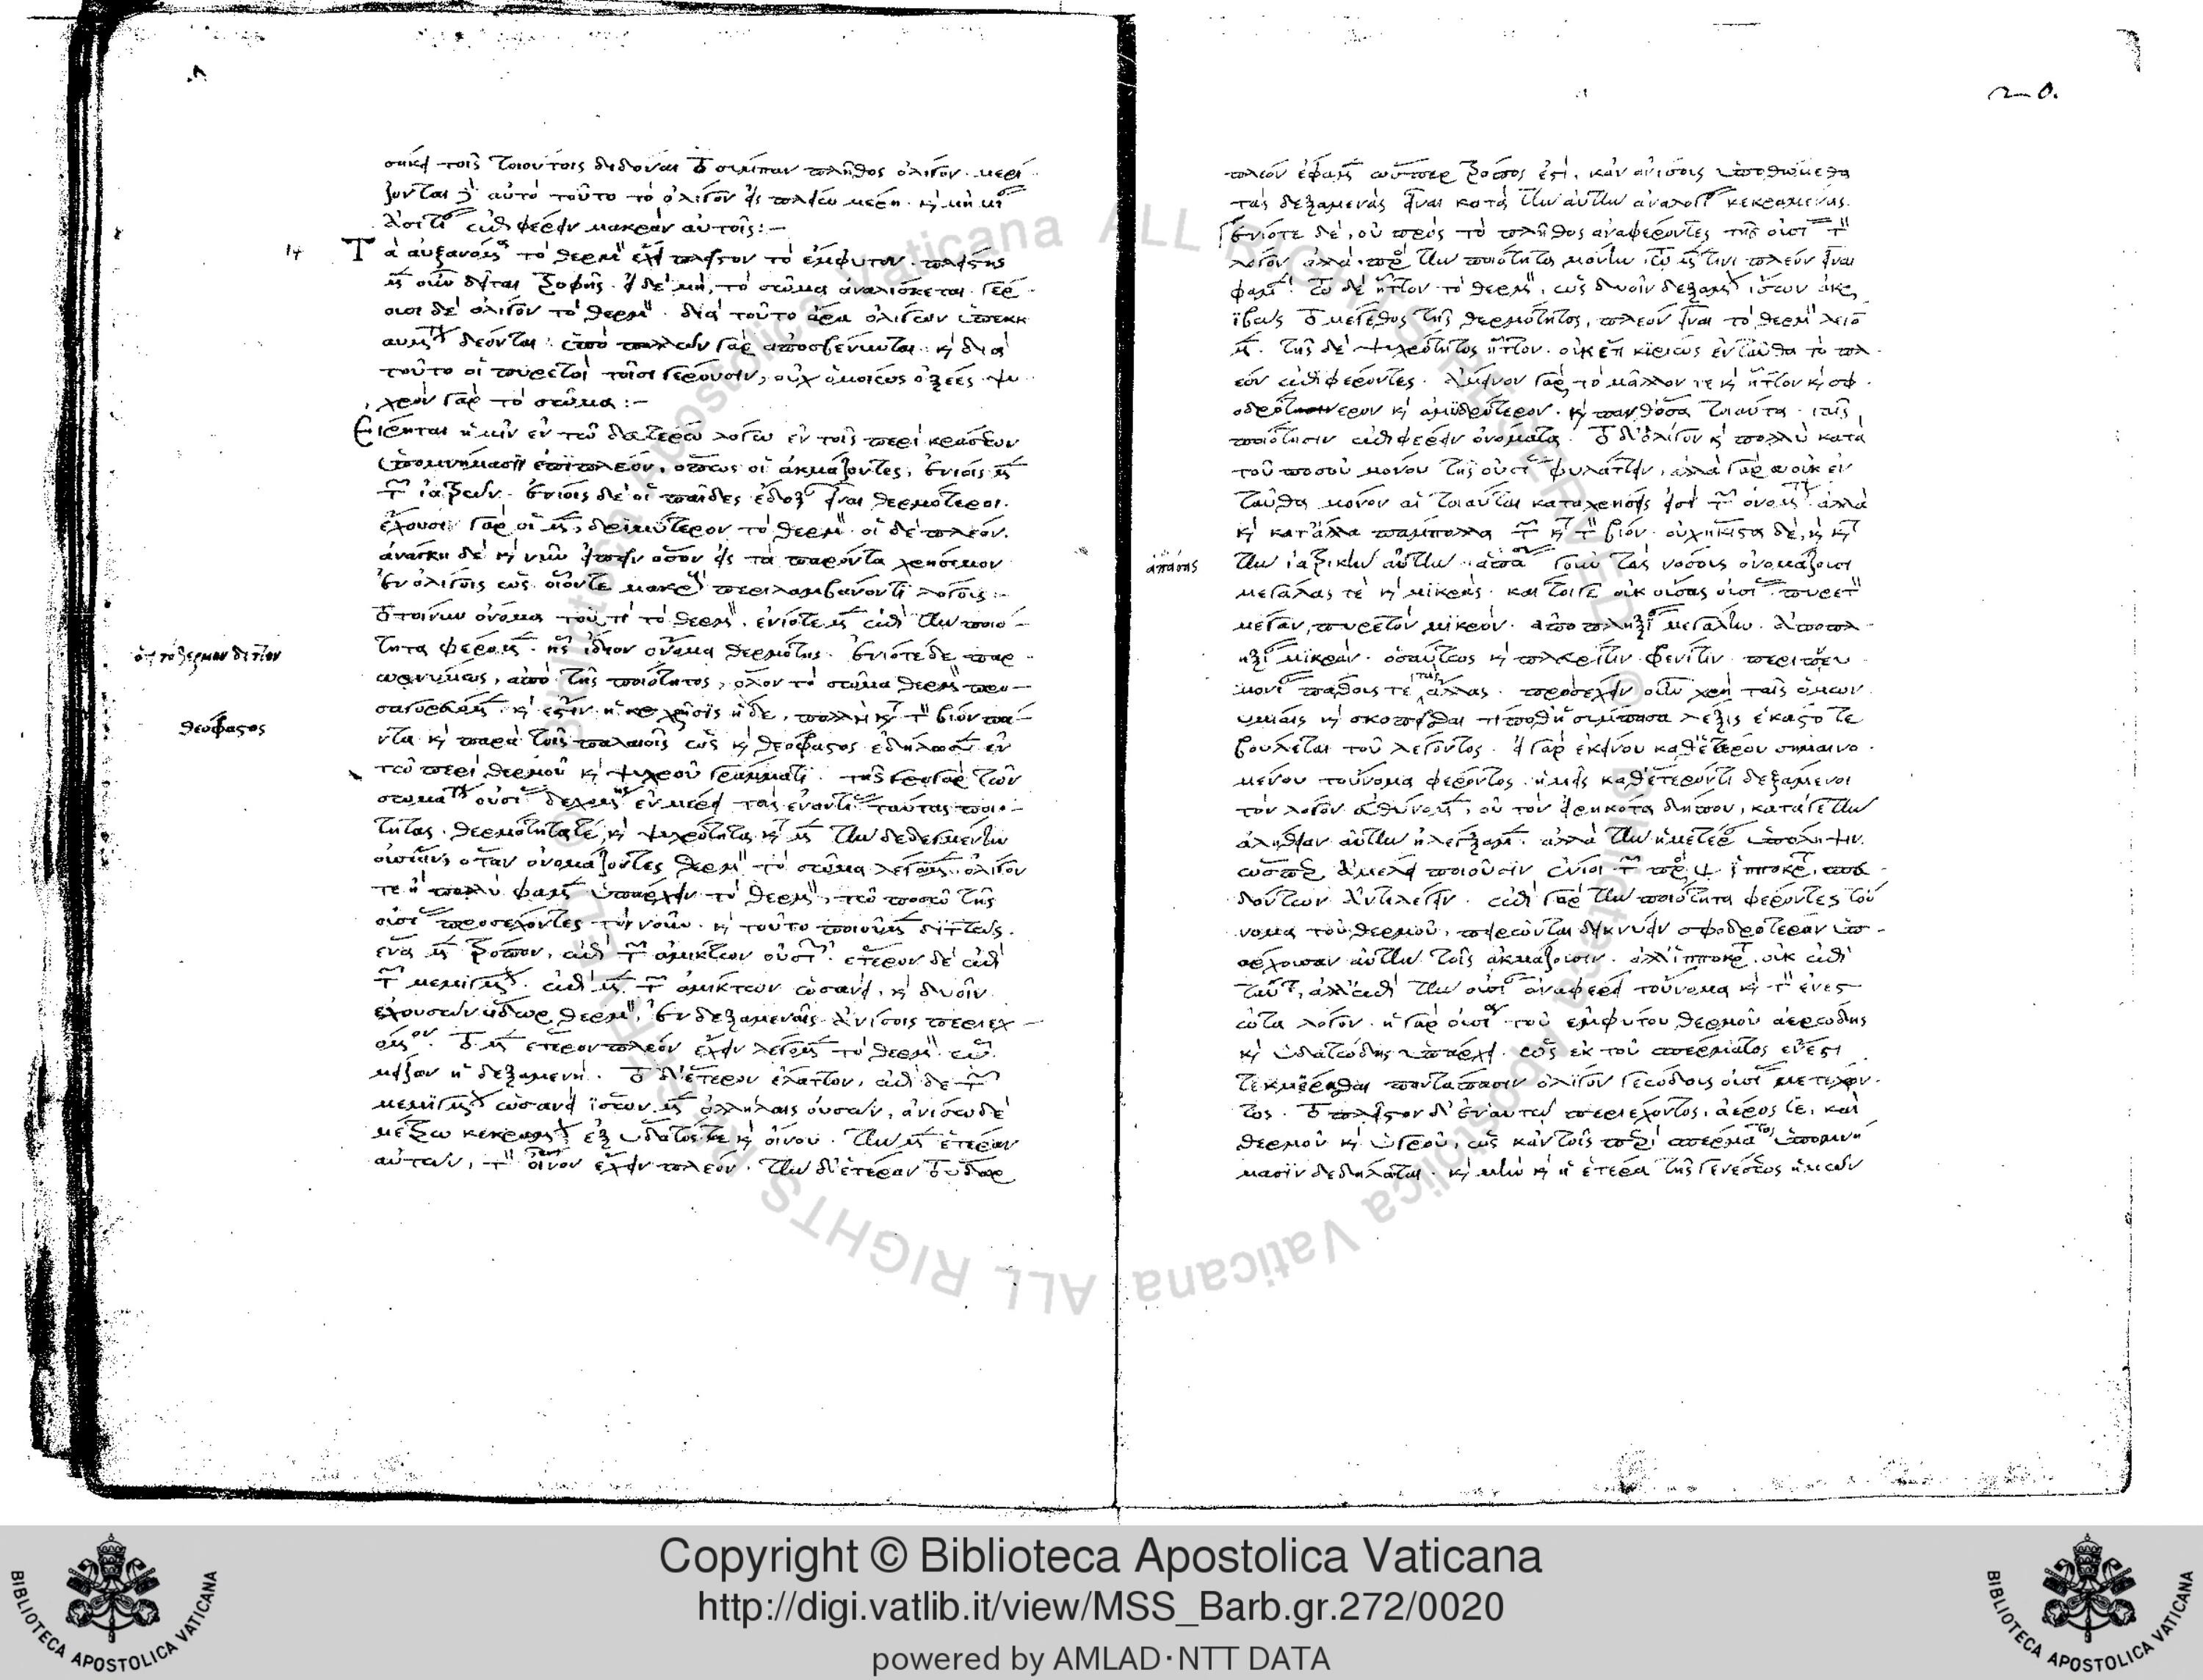 σήκει τοῖς τοιούτοις διδόναι τὸ σύμπαν πλῆθος ὀλίγον. μερί
ζονται δὲ αὐτὸ τοῦτο τὸ ὀλίγον εἰς πλείω μέρη. καὶ μὴ
ἐπιφέρειν μακρὰν αὐτοῖς:-
14 Τὰ αὐξανόμενα τὸ θερμὸν ἔχει πλεῖστον τὸ ἔμφυτον. πλείστης
μὲν οὖν δεῖται τροφῆς. εἰ δὲ μὴ, τὸ σῶμα ἀναλίσκεται. γέρ
ουσι δὲ ὀλίγον τὸ θερμὸν. διὰ τοῦτο ἄρα ὀλίγων ὑπεκκ
αυμάτων δέονται. ὑπὸ πολλῶν γὰρ ἀποσβέννυται. καὶ διὰ
τοῦτο οἱ πυρετοὶ τοῖσι γέρουσιν, οὐχ ὁμοίως ὀξέες. ψυ
χρὸν γὰρ τὸ σῶμα:-
Εἴρηται ἡμῖν ἐν τῷ δευτέρῳ λόγῳ ἐν τοῖς περὶ κράσεων
ὑπομνήμασιν ἐπιπλέον, ὅπως οἱ ἀκμάζοντες, ἐνίοις μὲν
τῶν ἰατρῶν. ἐνίοις δὲ οἱ παῖδες ἔδοξαν εἶναι θερμότεροι.
ἔχουσι γὰρ οἱ μὲν, δριμύτερον τὸ θερμὸν. οἱ δὲ πλέον.
ἀνάγκη δὲ καὶ νῦν εἰπεῖν ὅσον εἰς τὰ παρόντα χρήσιμον
ἐν ὀλίγοις ὡς οἷόντε μακροὺς περιλαμβάνοντι λόγοις:-
τὸ τοίνυν ὄνομα τουτὶ τὸ θερμὸν. ἐνίοτε μὲν ἐπὶ τὴν ποιό
τητα φέρομεν. ἧς ἴδιον ὄνομα θερμότης. ἐνίοτε δὲ παρ
ωνύμως, ἀπὸ τῆς ποιότητος, ὅλον τὸ σῶμα θερμὸν προ
σαγορεύομεν. καὶ ἔστιν ἡ χρῆσις ἥδε, πολλὴ κατὰ τὸν βίον πά
ντα καὶ παρὰ τοῖς παλαιοῖς ὡς καὶ θεόφραστος ἐδήλωσεν ἐν
τῷ περὶ θερμοῦ καὶ ψυχροῦ γράμματι. τῆς γὰρ τῶν
σωμάτων οὐσίας δεχομένης ἐν μέρει τὰς ἐναντίας ταύτας ποιό
τητας. θερμότητά τε, καὶ ψυχρότητα
οὐσίαν ὅταν ὀνομάζοντες θερμὸν τὸ σῶμα λέγομεν. ὀλίγον
τε ἢ πολὺ φαμὲν ὑπάρχειν τὸ θερμὸν, τῷ ποσῷ τῆς
οὐσίας προσέχοντες τὸν νοῦν. καὶ τοῦτο ποιοῦμεν διττῶς.
ἕνα μὲν τρόπον, ἐπὶ τῶν ἀμίκτων οὐσιῶν. ἕτερον δὲ ἐπὶ
τῶν μεμιγμένων. ἐπὶ μὲν τῶν ἀμίκτων ὡσανεὶ, καὶ δυοῖν
ἐχουσῶν ὕδωρ θερμὸν, ἐν δεξαμεναῖς ἀνίσοις περιεχ
όμενον. τὸ μὲν ἕτερον πλέον ἔχειν λέγομεν τὸ θερμὸν
μείζων ἡ δεξαμενή. τὸ δ' ἕτερον ἔλαττον, ἐπὶ δὲ τῶν
μεμιγμένων ὡσανεὶ ἴσων μὲν ἀλλήλαις οὐσῶν, ἀνίσων δὲ
κεκραμένων ἐξ ὕδατός τε καὶ οἴνου. τὴν μὲν ἑτέραν
αὐτῶν, τὸν οἶνον ἔχειν πλέον. τὴν δ' ἑτέραν τὸ ὕδωρ
ὅτι τὸ θερμὸν διττόν
θεόφραστος
20.
πλέον ἔφαμεν ὥσπερ τρόπος ἐστὶ. κἂν ἀνίσοις ὑποθώμεθα
τὰς δεξαμενὰς εἶναι κατὰ τὴν αὐτὴν ἀναλογίαν κεκραμένας.
ἐνίοτε δὲ, οὐ πρὸς τὸ πλῆθος ἀναφέροντες τῆς οὐσίας τὸν
λόγον ἀλλὰ πρὸς τὴν ποιότητα μόνην τῷ μέν τινι πλεόν εἶναι
φαμὲν. τῷ δὲ ἧττον τὸ θερμὸν, ὡς δυοῖν δεξαμενῶν ἴσων ἀκρ
ιβῶς τὸ μέγεθος τῆς θερμότητος, πλέον εἶναι τὸ θερμὸν λέγο
μεν. τῆς δὲ ψυχρότητος ἧττον. οὐκ ἔτι κυρίως ἐνταῦθα τὸ πλ
έον ἐπιφέροντες. ἄμεινον γὰρ τὸ μᾶλλόν τε καὶ ἧττον καὶ σφ
οδρότερον καὶ ἀμυδρότερον. καὶ πανθόσα τοιαῦτα ταῖς
ποιότησιν ἐπιφέρειν ὀνόματα. τὸ δ' ὀλίγον καὶ πολλὺ κατὰ
τοῦ ποσοῦ μόνου τῆς οὐσίας φυλάττειν, ἀλλὰ γὰρ οὐκ ἐν
ταῦθα μόνον αἱ τοιαῦται καταχρήσεις εἰσὶ τῶν ὀνομάτων ἀλλὰ
καὶ κατ' ἄλλα πάμπολλα τῶν κατὰ τὸν βίον. οὐχήκιστα δὲ, καὶ κατὰ
τὴν ἰατρικὴν αὐτὴν γοῦν τὰς νόσους ὀνομάζουσι
μεγάλας τὲ καὶ μικρὰς. καί τοι γε οὐκ οὔσας οὐσίας. πυρετὸν
μέγαν, πυρετὸν μικρόν. ἀποπληξίαν μεγάλην. ἀποπλ
ηξίαν μικράν. ὡσαύτως καὶ πλευρίτιν. φρενῖτιν περιπνευ
μονίαν πάθους τὲ τὰς ἄλλας. προσέχειν οὖν χρὴ ταῖς ὁμων
υμίαις καὶ σκοπεῖσθαι τί ποθ' ἡ σύμπασα λέξις ἑκάστοτε
βούλεται τοῦ λέγοντος. εἰ γὰρ ἐκείνου καθ' ἕτερον σημαινο
μένου τοὔνομα φέροντος. ἡμεῖς καθ' ἕτερόν τι δεξάμενοι
τὸν λόγον εὐθύνομεν, οὐ τὸν εἰρηκότα δήπου, κατά γε τὴν
ἀλήθειαν αὐτὴν ἠλέγξαμεν. ἀλλὰ τὴν ἡμετέραν ὑπόληψιν.
ὥσπερ ἀμέλει ποιοῦσιν ἔνιοι τῶν πρὸς
ἀντιλέγειν. ἐπὶ γὰρ τὴν ποιότητα φέροντες τοὔ
νομα τοῦ θερμοῦ, πειρῶνται δεικνύειν σφοδροτέραν ὑπ
άρχουσαν αὐτὴν τοῖς ἀκμάζουσιν. ἀλλ' ἱπποκράτης οὐκ ἐπὶ
ταύτην, ἀλλ' ἐπὶ τὴν οὐσίαν ἀναφέρει τοὔνομα καὶ τὸν ἐνεσ
τῶτα λόγον. ἡ γὰρ οὐσία τοῦ ἐμφύτου θερμοῦ ἀερώδης
καὶ ὑδατώδης ὑπάρχει. ὡς ἐκ τοῦ σπέρματος ἔνεστι
τεκμήρασθαι παντάπασιν ὀλίγον γεώδους οὐσίας μετέχον
τος. τὸ πλεῖστον δ' ἐν αὐτῷ περιέχοντος, ἀέρος τε, καὶ
θερμοῦ καὶ ὑγροῦ, ὡς κἂν τοῖς περὶ σπέρματος ὑπομνή
μασιν δεδήλωται. καὶ μὴν καὶ ἡ ἑτέρα τῆς γενέσεως ἡμῶν
ἁπάσης
Copyright © Biblioteca Apostolica Vaticana
http://digi.vatlib.it/view/MSS_Barb.gr.272/0020
powered by AMLAD·NTT DATA
BIBLIOTECA APOSTOLICA VATICANA
BIBLIOTECA APOSTOLICA VATICANA